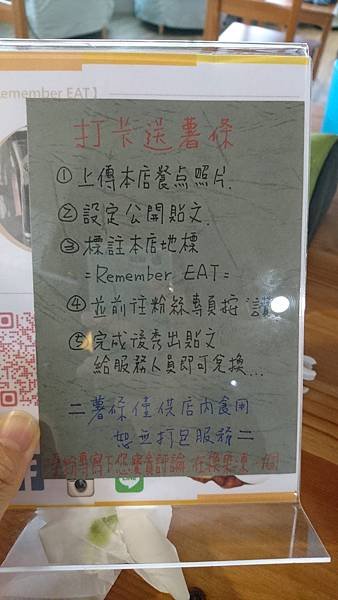 Remember EAT】
打卡送薯條
①上傳本店餐点照片.
②設定公開貼文.
③標註本店地標
=Remember EAT=
④並前往粉絲專頁按讚
⑤完成後秀出貼文
給服務人員即可兌換...
=薯條僅供店內食用
恕無打包服務=
下您寶貴評論,在換